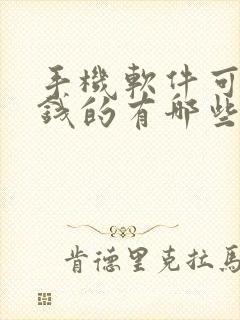 手機軟件可
錢的有哪些
肯德里克拉馬